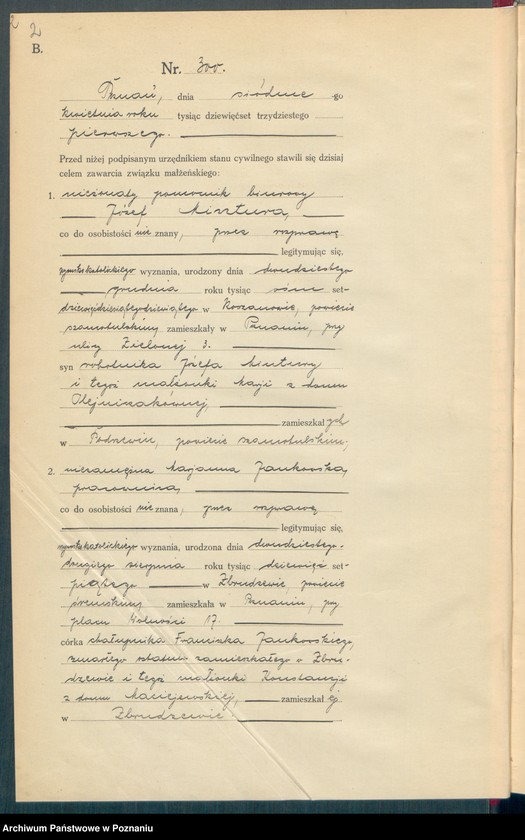 2
2
B.
Nr. 300.
Poznań, dnia siódme go
kwietnia roku tysiąc dziewięćset trzydziestego
pierwszego.
Przed niżej podpisanym urzędnikiem stanu cywilnego stawili się dzisiaj
celem zawarcia związku małżeńskiego:
1. nieżonaty pomocnik biurowy
Józef Misztura,
co do osobistości nie znany, przez rozprawę
legitymując się,
rzymskokatolickiego wyznania, urodzony dnia dwudziestego
grudnia roku tysiąc ośm set-
dziewięćdziesiątego dziewiątego w powiecie
szamotulskim, zamieszkały w Poznaniu, przy
ulicy Zielonej 3.
syn robotnika Józefa
i tegoż małżonki Marji z domu
Olejniczakównej,
zamieszkałych
w Podrzewiu, powiecie szamotulskim,
2. niezamężna Marjanna Jankowska,
pracownica,
co do osobistości nie znana, przez rozprawę
legitymując się,
rzymskokatolickiego wyznania, urodzona dnia dwudziestego-
drugiego sierpnia roku tysiąc dziewięć set-
piątego w Zbrudzewie, powiecie
śremskim, zamieszkała w Poznaniu, przy
placu Wolności 17.
córka chałupnika Franciszka Jankowskiego,
zmarłego ostatnio zamieszkałego w Zbru-
dzewie i tegoż małżonki Konstancji
z domu Maciejewskiej, zamieszkałej
w Zbrudzewie.
Archiwum Państwowe w Poznaniu